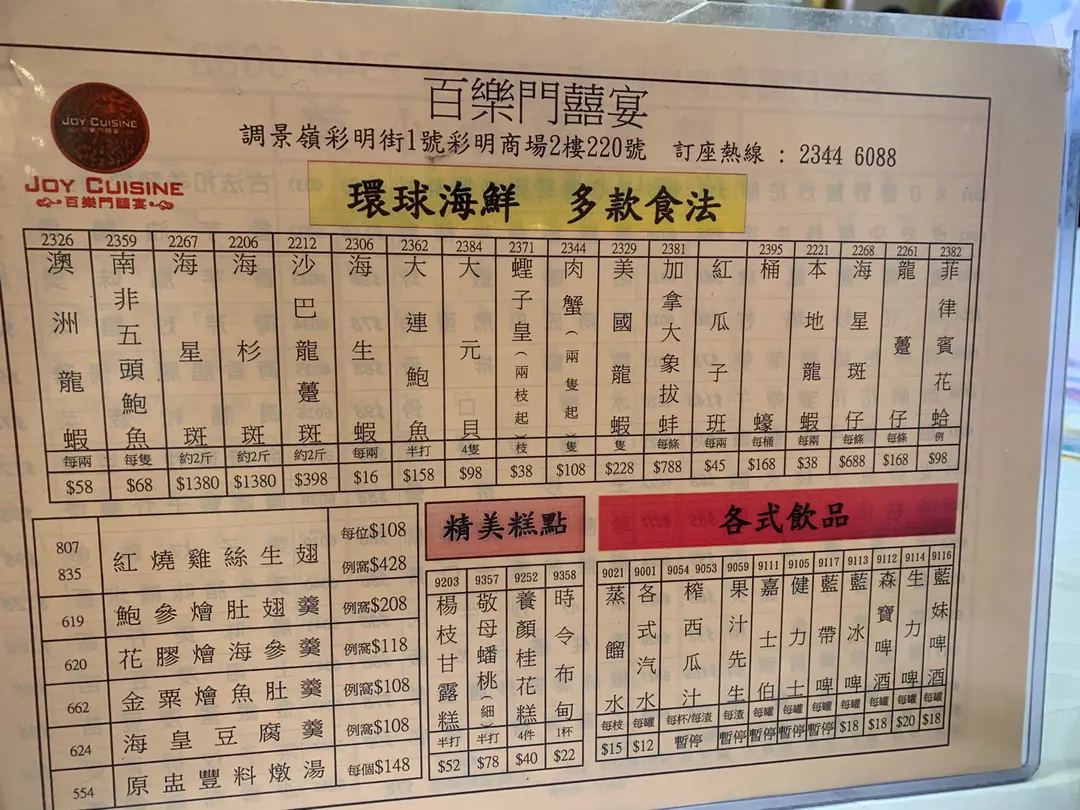 JOY CUISINE
百樂門囍宴
JOY CUISINE
百樂門囍宴
百樂門囍宴
調景嶺彩明街1號彩明商場2樓220號 訂座熱線：2344 6088
環球海鮮 多款食法
2326 澳洲龍蝦 每兩 $58
2359 南非五頭鮑魚 每隻 $68
2267 海星斑 約2斤 $1380
2206 海杉斑 約2斤 $1380
2212 沙巴龍躉斑 約2斤 $398
2306 海生蝦 每兩 $16
2362 大連鮑魚 半打 $158
2384 大元貝 4隻 $98
2371 蟶子皇(兩枝起) 枝 $38
2344 肉蟹(兩隻起) 隻 $108
2329 美國龍蝦 隻 $228
2381 加拿大象拔蚌 每條 $788
紅瓜子斑 每兩 $45
2395 桶蠔 每桶 $168
2221 本地龍蝦 每兩 $38
2268 海星斑仔 每條 $688
2261 龍躉仔 每條 $168
2382 菲律賓花蛤 例 $98
807 835 紅燒雞絲生翅 每位$108 例窩$428
619 鮑參燴肚翅羹 例窩$208
620 花膠燴海參羹 例窩$118
662 金粟燴魚肚羹 例窩$108
624 海皇豆腐羹 例窩$108
554 原盅豐料燉湯 每個$148
精美糕點
9203 楊枝甘露糕 半打 $52
9357 敬母蟠桃(細) 半打 $78
9252 養顏桂花糕 4件 $40
9358 時令布甸 1杯 $22
各式飲品
9021 蒸餾水 每枝 $15
9001 各式汽水 每罐 $12
9054 9053 榨西瓜汁 每杯/每渣 暫停
9059 果汁先生 每渣 暫停
9111 嘉士伯 每罐 暫停
9105 健力士 每罐 暫停
9117 藍帶啤 每罐 暫停
9113 藍冰啤 每罐 $18
9112 森寶啤酒 每罐 $18
9114 生力啤 每罐 $20
9116 藍妹啤酒 每罐 $18